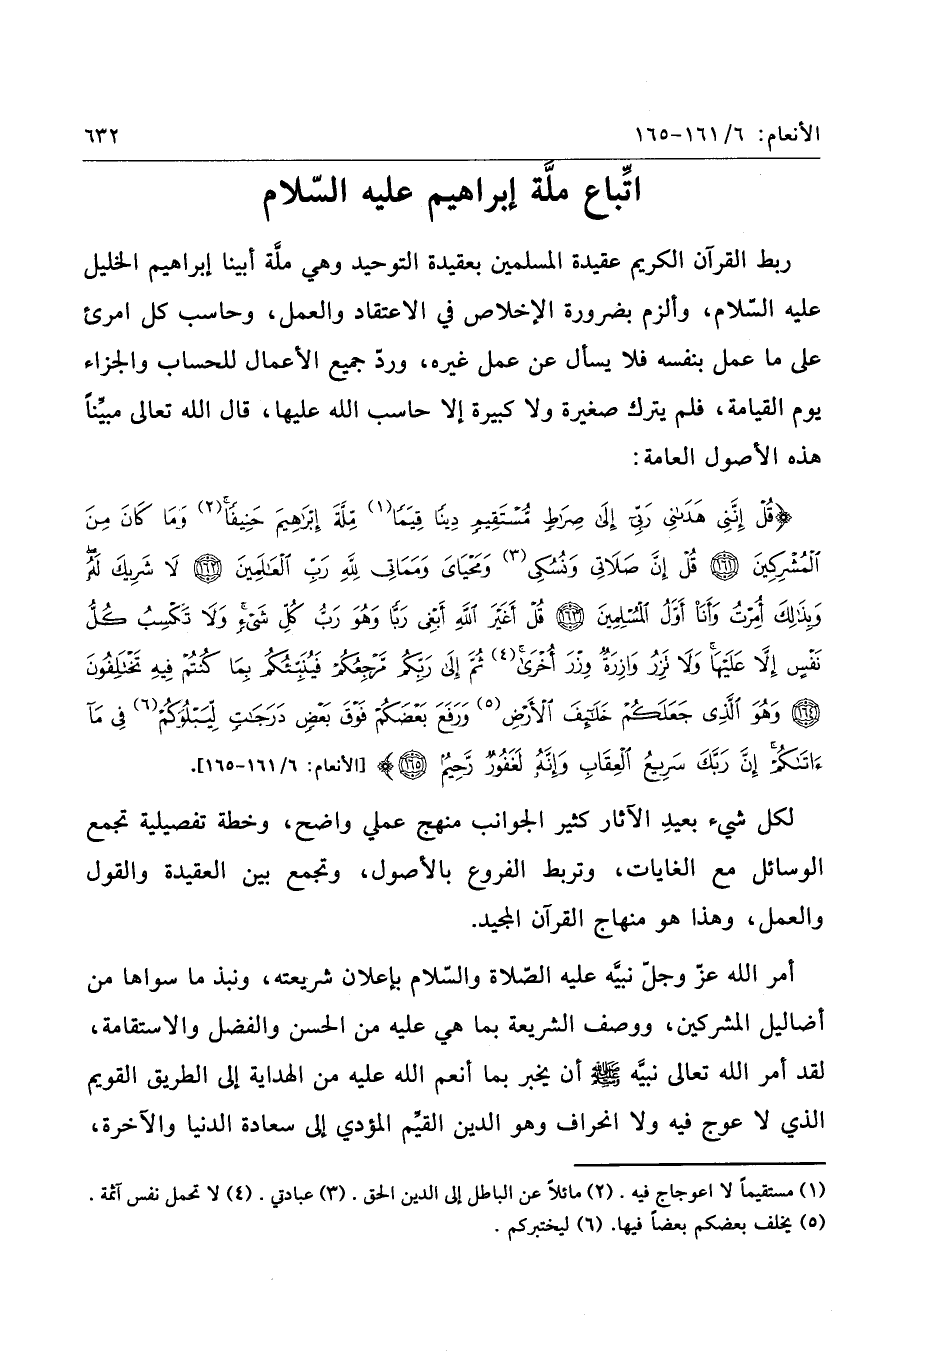 الأنعام: ٦/ ١٦١-١٦٥ ٦٣٢
اتِّباع ملَّة إبراهيم عليه السّلام
ربط القرآن الكريم عقيدة المسلمين بعقيدة التوحيد وهي ملَّة أبينا إبراهيم الخليل
عليه السّلام، وألزم بضرورة الإخلاص في الاعتقاد والعمل، وحاسب كل امرئ
على ما عمل بنفسه فلا يسأل عن عمل غيره، وردّ جميع الأعمال للحساب والجزاء
يوم القيامة، فلم يترك صغيرة ولا كبيرة إلا حاسب الله عليها، قال الله تعالى مبيِّناً
هذه الأصول العامة:
﴿قُلْ إِنَّنِي هَدَىٰنِي رَبِّيٓ إِلَىٰ صِرَٰطٍ مُّسْتَقِيمٍ دِينًا قِيَمًا(١) مِّلَّةَ إِبْرَٰهِيمَ حَنِيفًاۚ(٢) وَمَا كَانَ مِنَ
ٱلْمُشْرِكِينَ ١٦١ قُلْ إِنَّ صَلَاتِي وَنُسُكِي(٣) وَمَحْيَايَ وَمَمَاتِي لِلَّهِ رَبِّ ٱلْعَٰلَمِينَ ١٦٢ لَا شَرِيكَ لَهُۥۖ
وَبِذَٰلِكَ أُمِرْتُ وَأَنَا۠ أَوَّلُ ٱلْمُسْلِمِينَ ١٦٣ قُلْ أَغَيْرَ ٱللَّهِ أَبْغِي رَبًّا وَهُوَ رَبُّ كُلِّ شَيْءٍۚ وَلَا تَكْسِبُ كُلُّ
نَفْسٍ إِلَّا عَلَيْهَاۚ وَلَا تَزِرُ وَازِرَةٌ وِزْرَ أُخْرَىٰۚ(٤) ثُمَّ إِلَىٰ رَبِّكُم مَّرْجِعُكُمْ فَيُنَبِّئُكُم بِمَا كُنتُمْ فِيهِ تَخْتَلِفُونَ
١٦٤ وَهُوَ ٱلَّذِي جَعَلَكُمْ خَلَٰٓئِفَ ٱلْأَرْضِ(٥) وَرَفَعَ بَعْضَكُمْ فَوْقَ بَعْضٍ دَرَجَٰتٍ لِّيَبْلُوَكُمْ(٦) فِي مَآ
ءَاتَىٰكُمْۗ إِنَّ رَبَّكَ سَرِيعُ ٱلْعِقَابِ وَإِنَّهُۥ لَغَفُورٌ رَّحِيمٌۢ ١٦٥﴾ [الأنعام: ٦/ ١٦١-١٦٥].
لكل شيء بعيدِ الآثار كثير الجوانب منهج عملي واضح، وخطة تفصيلية تجمع
الوسائل مع الغايات، وتربط الفروع بالأصول، وتجمع بين العقيدة والقول
والعمل، وهذا هو منهاج القرآن المجيد.
أمر الله عزّ وجلّ نبيَّه عليه الصّلاة والسّلام بإعلان شريعته، ونبذ ما سواها من
أضاليل المشركين، ووصف الشريعة بما هي عليه من الحسن والفضل والاستقامة،
لقد أمر الله تعالى نبيَّه ﷺ أن يخبر بما أنعم الله عليه من الهداية إلى الطريق القويم
الذي لا عوج فيه ولا انحراف وهو الدين القيِّم المؤدي إلى سعادة الدنيا والآخرة،
(١) مستقيماً لا اعوجاج فيه . (٢) مائلاً عن الباطل إلى الدين الحق . (٣) عبادتي . (٤) لا تحمل نفس آثمة .
(٥) يخلف بعضكم بعضاً فيها. (٦) ليختبركم .